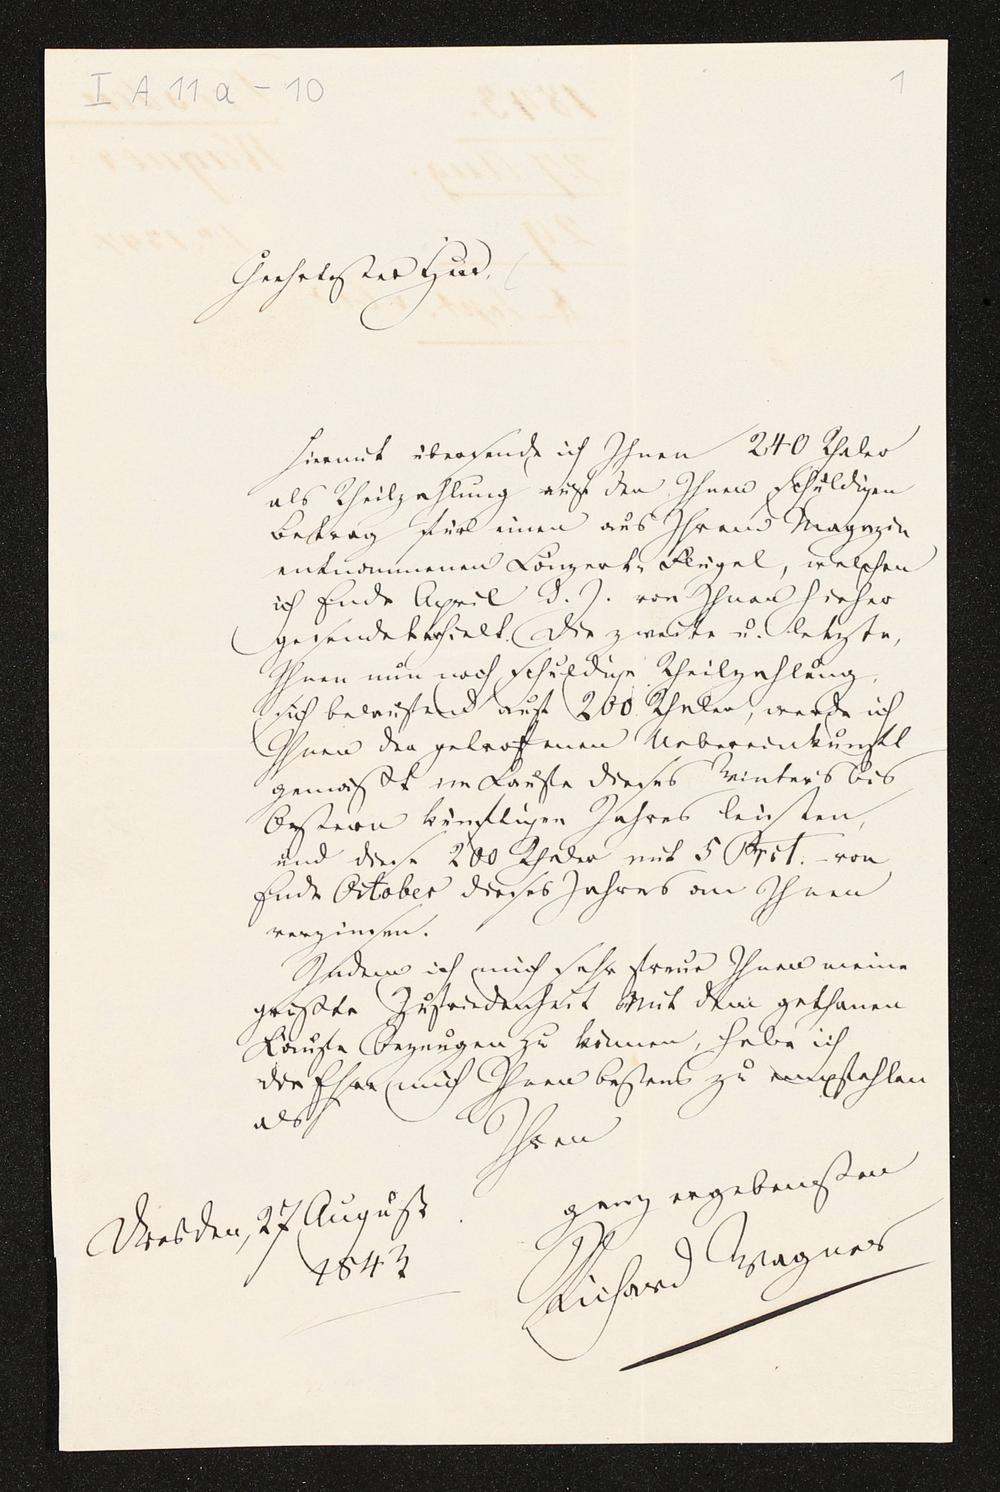 I A 11 a - 10
1
Geehrtester Herr,
Hiermit übersende ich Ihnen 240 Thaler
als Theilzahlung auf den Ihnen schuldigen
Betrag für einen aus Ihrem Magazin
entnommenen Conzert-Flügel, welchen
ich Ende April d. J. von Ihnen hieher
gesendet erhielt. Die zweite u. letzte,
Ihnen nun noch schuldige Theilzahlung,
sich belaufend auf 200 Thaler, werde ich
Ihnen der getroffenen Uebereinkunft
gemäss im Laufe dieses Winters bis
Ostern künftigen Jahres leisten,
und diese 200 Thaler mit 5 Prct. - von
Ende October dieses Jahres an Ihnen
verzinsen.
Indem ich mich sehr freue Ihnen meine
größte Zufriedenheit mit dem gethanen
Kaufe bezeugen zu können, habe ich
die Ehre mich Ihnen bestens zu empfehlen
als
Ihren
ganz ergebensten
Richard Wagner
Dresden, 27 August
1843